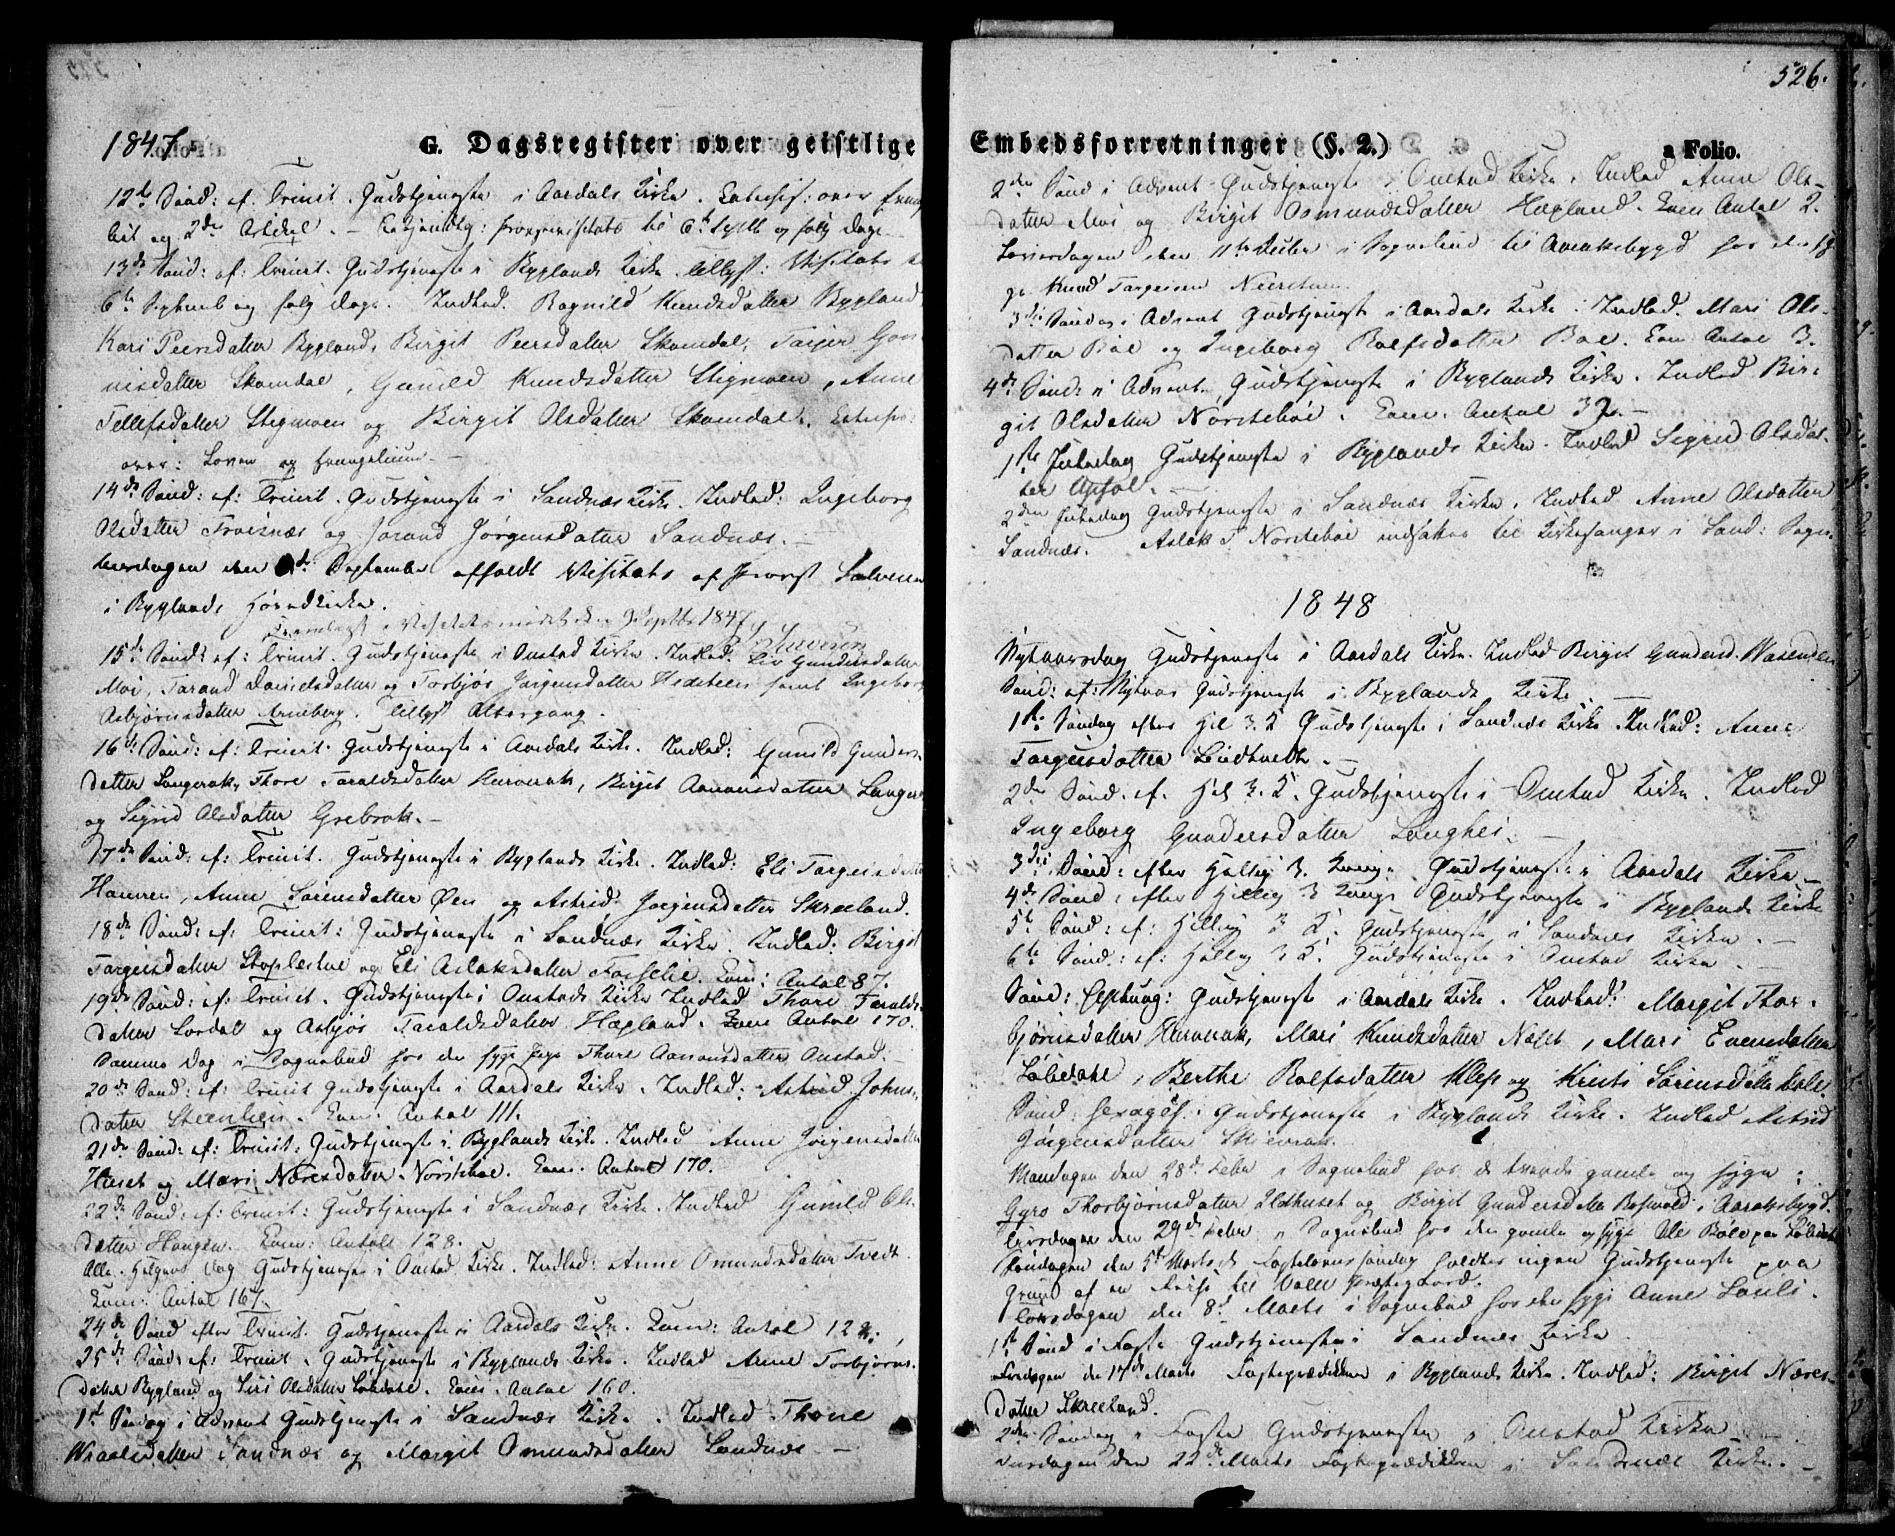 1847.
G. Dagsregister over geistlige
12te Sønd: ef: Trinit. Gudstjeneste i Aardals Kirke. Catechis: over
2den Artikel. til 6te Septb og følg Dage
13de Sønd: ef: Trinit. Gudstjeneste i Byglands Kirke. tillyst: Visitats
6te Septemb og følg Dage. Indled. Ragnild Knudsdatter Bygland
Kari Peersdatter Bygland, Birgit Peersdatter Skomdal, Gon
nisdatter Skomdal, Gunild Knudsdatter Stegmoen, Anne
Tellefsdatter Stegmoen og Birgit Olsdatter Skomdal. Catechis:
over: Loven og Evangelium.
14de Sønd: ef: Trinit. Gudstjeneste i Sandnæs Kirke. Indled: Ingeborg
Olsdatter Froisnæs og Jorand Jørgensdatter Sandnæs.
den September afholdt Visitats af Provst
i Byglands Hovedkirke.
Fremlagt i Visitatsmødet den 9 Septbr 1847
15de Sønd: ef: Trinit. Gudstjeneste i Austad Kirke. Indled. Liv Gundersdatter
Moi, Tarand Danielsdatter og Torbjør Jørgensdatter samt Ingeborg
Asbjørnsdatter Arneberg. tillyst Altergang.
16de Sønd: ef: Trinit. Gudstjeneste i Aardals Kirke. Indled: Gunild Gunders-
datter Langerak, Thore Taraldsdatter Hurverak, Birgit Aanonsdatter Langer
og Sigrid Olsdatter Grebrok.
17de Sønd: ef: Trinit. Gudstjeneste i Byglands Kirke. Indled: Eli Targeisdatter
Hamren, Anne Sørensdatter Øen og Astrid Jørgensdatter Skreeland.
18de Sønd: ef: Trinit: Gudstjeneste i Sandnæs Kirke. Indled: Birgit
Targeisdatter og Eli Aslaksdatter Com: Antal 87.
19de Sønd: ef: Trinit. Gudstjeneste i Austads Kirke Indled Thore Taralds-
datter Lordal og Asbjør Taraldsdatter Hægland. Com Antal 170.
Samme Dag i Sognebud hos den syge Pige Thore Aanonsdatter Austad.
20de Sønd: ef: Trinit Gudstjeneste i Aardals Kirke. Indled: Astrid Johns-
datter Com: Antal 111.
21de Sønd: ef: Trinit: Gudstjeneste i Byglands Kirke. Indled Anne Jørgensdatter
Huset og Mari Næresdatter Norstebøe. Com: Antal 170.
22de Sønd: ef: Trinit: Gudstjeneste i Sandnæs Kirke. Indled Gunild Ols-
datter Haugen. Com: Antal 128.
Alle Helgens Dag Gudstjeneste i Austad Kirke. Indled: Anne Omundsdatter Tvedt
Com: Antal 167.
24de Sønd efter Trinit. Gudstjeneste i Aardals Kirke. Com: Antal
25de Sønd: ef: Trinit. Gudstjeneste i Byglands Kirke. Indled Anne Torbjørns-
datter Bygland og Siri Olsdatter Løbedal. Com: Antal 160.
1ste Søndag i Advent Gudstjeneste i Sandnæs Kirke. Indled Thone
Wraalsdatter Sandnæs og Margit Omundsdatter Sandnæs.
526.
Embedsforretninger (§. 2.) a Folio.
2den Sønd i Advent Gudstjeneste i Austad Kirke. Indled Anne Ols-
datter Moi og Birgit Osmundsdatter Hægland. Com Antal 2.
Løverdagen den 11te Decber i Sognebud til Araksbygd hos den
Knud Targeisen
3die Søndag i Advent Gudstjeneste i Aardals Kirke. Indled. Mari Ols-
datter Bøe og Ingeborg Rolfsdatter Bøe. Com Antal 3.
4de Sønd i Advent, Gudstjeneste i Byglands Kirke. Indled Bir-
git Olsdatter Norstebøe. Com. Antal 32.
1ste Juledag Gudstjeneste i Byglands Kirke. Indled Sigrid Olsdat-
ter
2den Juledag Gudstjeneste i Sandnæs Kirke. Indled Anne Olsdatter
Sandnæs. Aslak T Norstebøe indsættes til Kirkesanger i Sand: Sogn.
1848
Nytaarsdag Gudstjeneste i Aardals Kirke. Indled Birgit Gundersd. Wasenden
Sønd: ef: Nytaar Gudstjeneste i Byglands Kirke.
1ste Søndag efter Hel 3. K Gudstjeneste i Sandnæs Kirke. Indled: Anne
Targeisdatter Lindtveit.
2den Sønd. ef. Hel 3. K. Gudstjeneste i Austad Kirke. Indled
Ingeborg Gundersdatter Langhei.
3die Sønd: efter Hellig 3. Kong. Gudstjeneste i Aardals Kirke
4de Sønd: efter Hellig 3 Konge Gudstjeneste i Byglands Kirke
5te Sønd: ef: Hellig 3 K. Gudstjeneste i Sandnæs Kirke.
6te Sønd: ef: Hellig 3 K. Gudstjeneste i Austad Kirke.
Sønd: Septuag: Gudstjeneste i Aardals Kirke. Indled: Margit Thor-
bjørnsdatter Hurverak, Mari Knudsdatter Næset, Mari Evensdatter
Løbedal, Berthe Rolfsdatter Klep og Sørensdatter
Sønd: Sexages: Gudstjeneste i Byglands Kirke. Indled Astrid
Jørgensdatter
Mandagen den 28de Feber i Sognebud hos de tvende gamle og syge:
Gyro Thorbjørnsdatter og Birgit Gundersdatter i Araksbygd.
Tirsdagen den 29de Feber i Sognebud hos den gamle og syge Ole Bøle paa Løbedal
Søndagen den 5te Marts Fastelavnssøndag holdtes ingen Gudstjeneste paa
Grund af en Reise til Valle Præstegaard.
Onsdagen den 8de Marts i Sognebud hos den syge Anne Lauli.
1ste Sønd i Faste Gudstjeneste i Sandnæs Kirke
Fredagen den 17de Marts Fasteprædiken i Byglands Kirke. Indled: Birgit Næres-
datter Skreeland.
2den Søndag i Faste Gudstjeneste i Austad Kirke
Onsdagen den 22de Marts Fasteprædiken i Sandnæs Kirke.